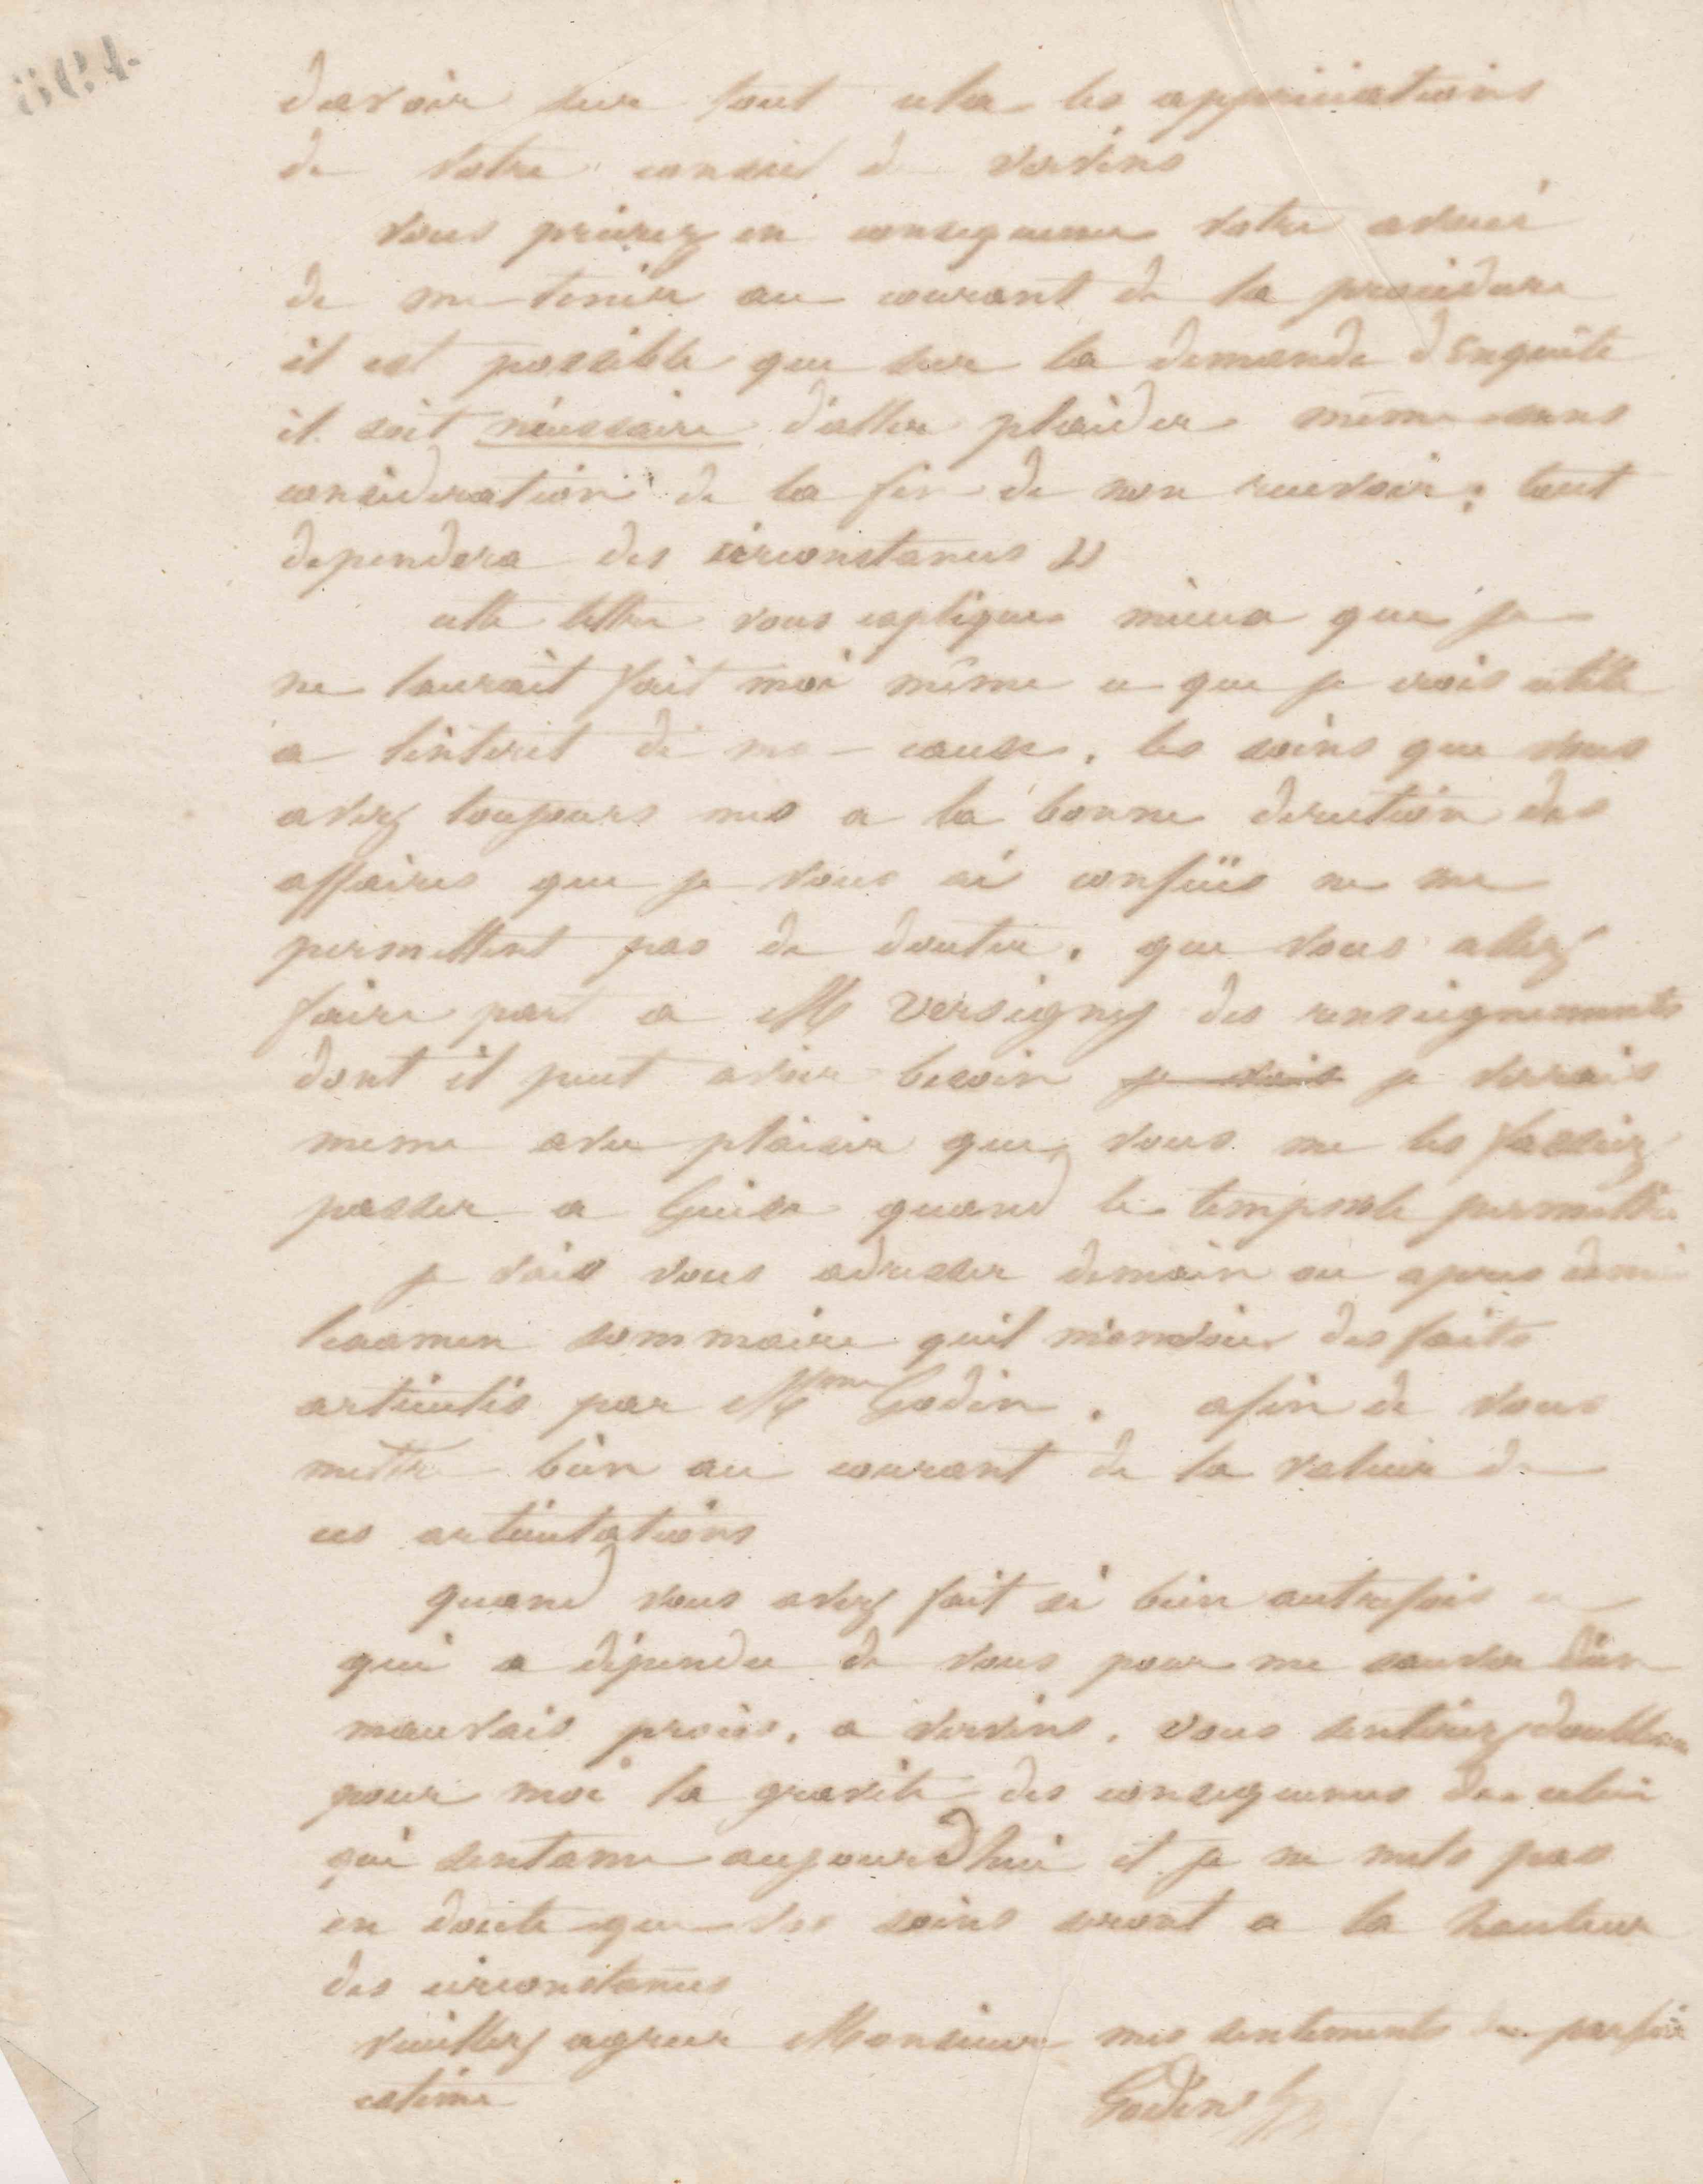 davoir sur tout cela les appréciations
de votre conseil de vervins
vous prierez en consequence votre avoué
de me tenir au courant de la procedure
il est possible que sur la demande d'Enquête
il soit nécessaire d'aller plaider même sans
consideration de la fin de non recevoir ; tout
dependera des circonstances »
cette lettre vous explique mieux que je
ne laurait fait moi même ce que je crois utile
a linteret de ma cause. les soins que vous
avez toujours mis a la bonne direction des
affaires que je vous ai confiïes ne me
permettent pas de douter, que vous allez
faire part a M Versigny des renseignements
dont il peut avoir besoin je vais je verrais
meme avec plaisir que vous me les fassiez
passer a Guise quand le temps le permettra
je vais vous adresser demain ou apres demain
lexamen sommaire quil m'envoie des faits
articulés par Mme Godin. afin de vous
mettre bien au courant de la valeur de
ces articulations
quand vous avez fait si bien autrefois ce
qui a dépendu de vous pour me sauver d'un
mauvais procès, a vervins, vous sentirez doublement
pour moi la gravité des consequences de celui
qui sentame aujourd'hui et je ne mets pas
en doute que vos soins seront a la hauteur
des circonstances
veuillez agreer Monsieur mes sentiments de parfaite
estime
Godin